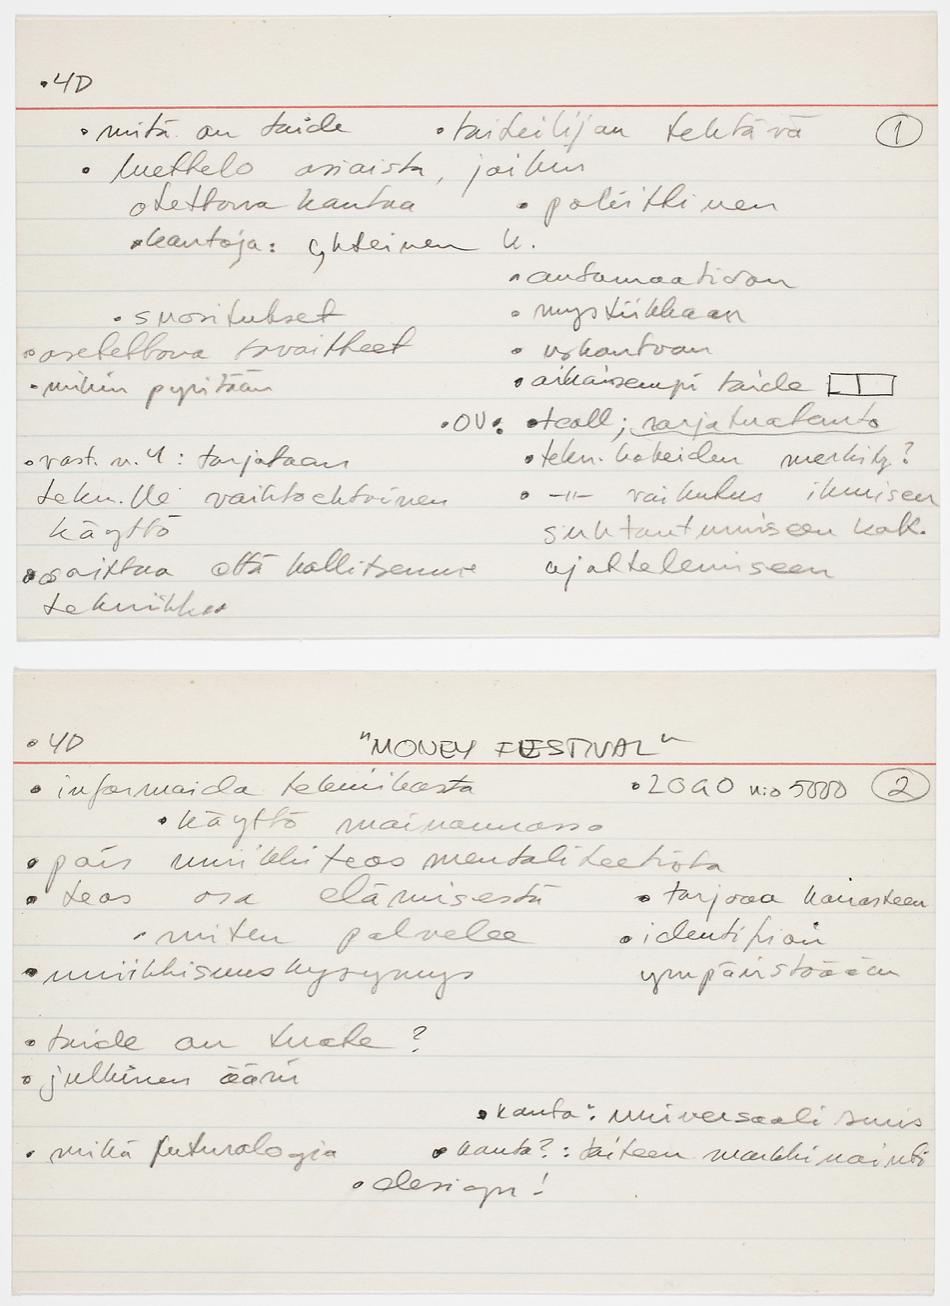 •4D
• mitä on taide •taiteilijan tehtävä ①
• luettelo asioista, joihin
otettava kantaa • poliittinen
•kantoja: yhteinen k.
•automaatioon
• suositukset • mystiikkaan
•asetettava tavoitteet • uskontoon
•mihin pyritään •aikaisempi taide
•OV: •teoll; sarjatuotanto
•vast. n.4: tarjotaan •tekn. kokeiden merkity?
tekn.lle vaihtoehtoinen • -"- vaikutus ihmisen
käyttö suhtautumiseen kok.
•osoittaa että hallitsemme ajattelemiseen
tekniikkaa
•4D "MONEY FESTIVAL"
• informoida tekniikasta •2090 n:o 5000 ②
•käyttö mainonnassa
• pois musiikkiteos mentaliteetista
• teos osa elämisestä • tarjoaa kuvasteen
•miten palvelee •identifioin
•musiikkisuuskysymys ympäristöään
• taide on tuote?
• julkinen ääni
•kanta: universaalisuus
• mikä futurologia •kanta?: taiteen markkinointi
•design!